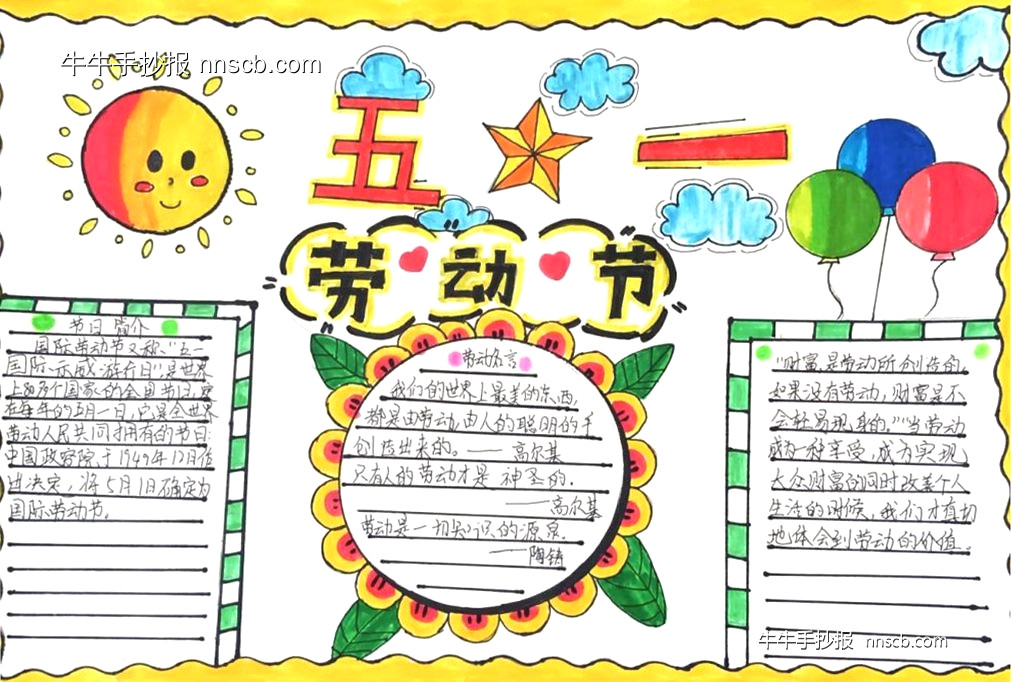 牛牛手抄报 nnscb.com
五一
劳动节
节日简介
国际劳动节又称、"五一
国际示威游行日"是世界
上80多个国家的全国节日,定
在每年的五月一日,它是全世界
劳动人民共同拥有的节日:
中国政容院于1949年12月作
出决定,将5月1日确定为
国际劳动节。
劳动名言
我们的世界上最美的东西,
都是由劳动,由人的聪明的手
创造出来的。——高尔基
只有人的劳动才是 神圣的.
——高尔基
劳动是一切知识的源泉.
——陶铸
"财富是劳动所创造的.
如果没有劳动,财富是不
会轻易现身的.""当劳动
成为一种享受,成为实现
大众财富的同时改善个人
生活的时候,我们才真切
地体会到劳动的价值.
牛牛手抄报 nnscb.com